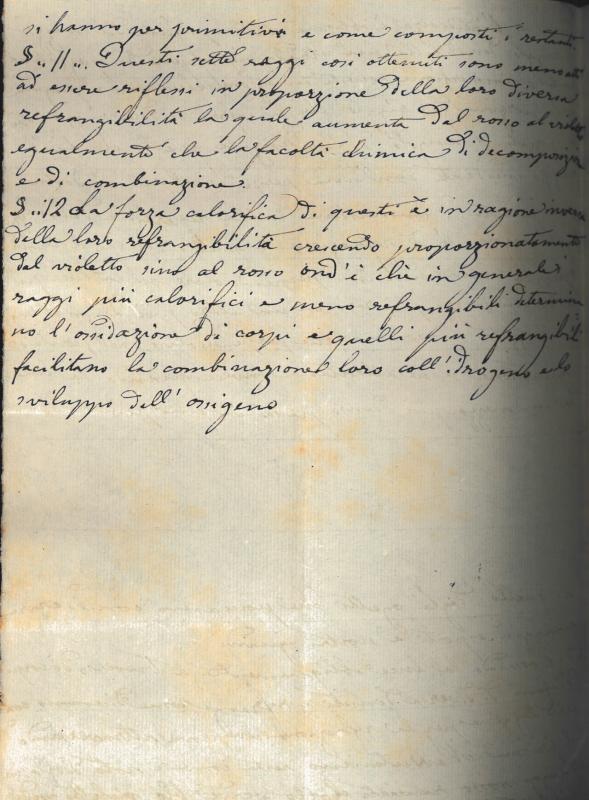 si hanno per primitivi e come composti i restanti.
§.. 11.. Questi sette raggi così ottenuti sono meno atti
ad essere riflessi in proporzione della loro diversa
refrangibilità la quale aumenta dal rosso al violetto
egualmente che la facoltà chimica di decomposizione
e di combinazione.
§..12 La forza calorifica di questi è in ragione inversa
della loro refrangibilità crescendo proporzionatamente
dal violetto sino al rosso ond'è che in generale i
raggi più calorifici e meno refrangibili determina
no l'ossidazione di corpi e quelli più refrangibili
facilitano la combinazione loro coll'idrogeno e lo
sviluppo dell'ossigeno